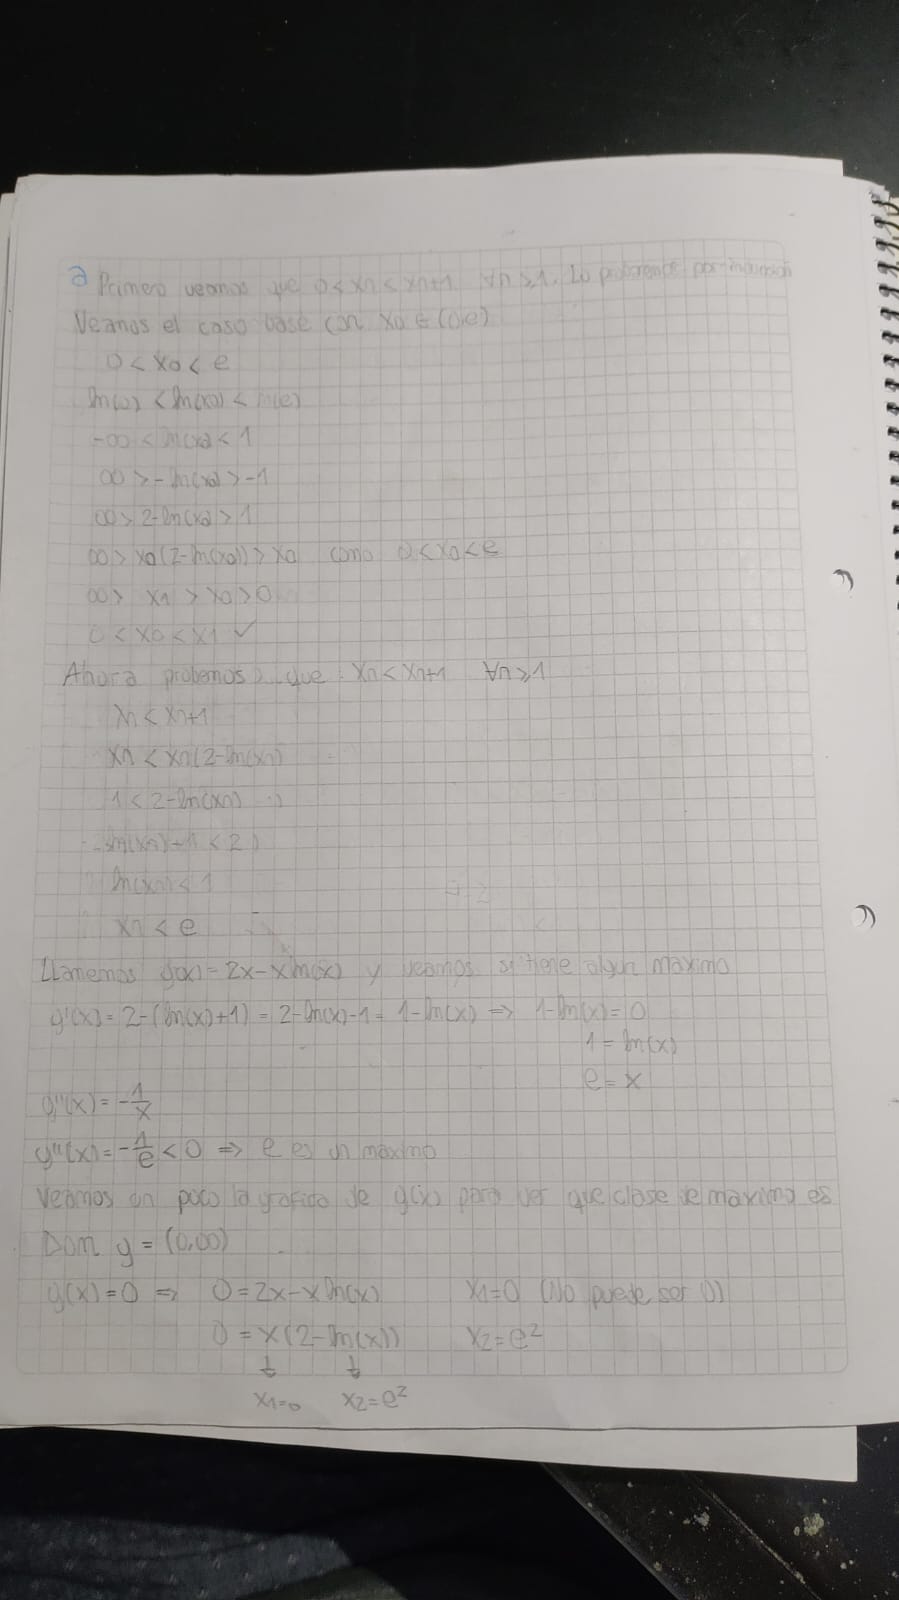 a Primero veamos que 0 < xn < xn+1 ∀n ≥ 1. Lo probaremos por inducción
Veamos el caso base con x0 ∈ (0,e)
0 < x0 < e
ln(0) < ln(x0) < ln(e)
-∞ < ln(x0) < 1
∞ > -ln(x0) > -1
∞ > 2-ln(x0) > 1
∞ > x0(2-ln(x0)) > x0 como 0 < x0 < e
∞ > x1 > x0 > 0
0 < x0 < x1 ✓
Ahora probemos que xn < xn+1 ∀n ≥ 1
xn < xn+1
xn < xn(2-ln(xn))
1 < 2-ln(xn)
ln(xn)+1 < 2
ln(xn) < 1
xn < e
Llamemos g(x) = 2x - x ln(x) y veamos si tiene algun maximo
g'(x) = 2-(ln(x)+1) = 2-ln(x)-1 = 1-ln(x) ⇒ 1-ln(x) = 0
1 = ln(x)
e = x
g''(x) = -1/x
g''(x) = -1/e < 0 ⇒ e es un maximo
Veamos un poco la grafica de g(x) para ver que clase de maximo es
Dom g = (0,∞)
g(x) = 0 ⇒ 0 = 2x - x ln(x) x1=0 (No puede ser 0)
0 = x(2-ln(x)) x2 = e²
↓ ↓
x1=0 x2=e²